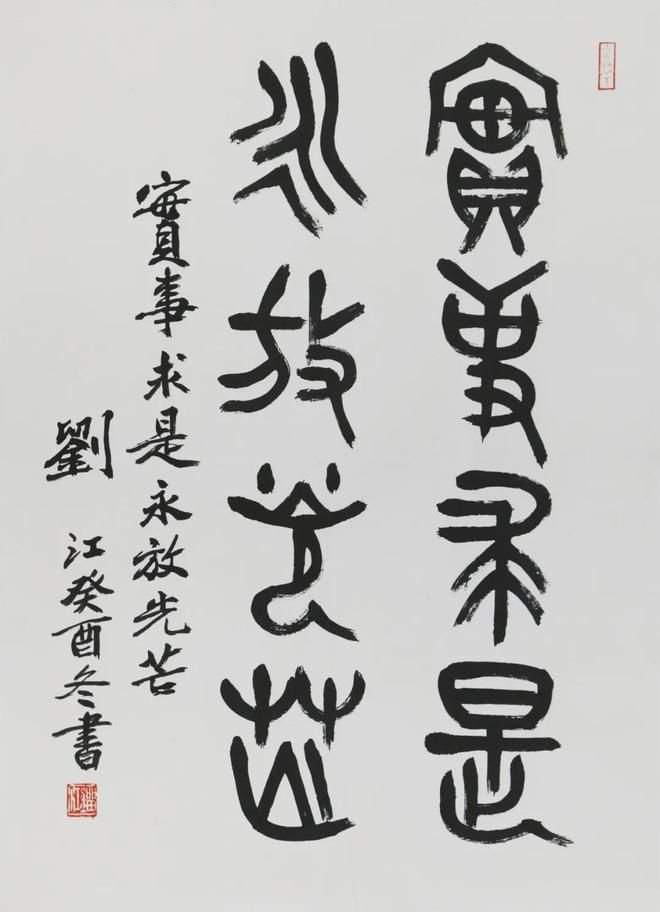 實事求是
永放光芒
實事求是永放光芒
劉江癸酉冬書